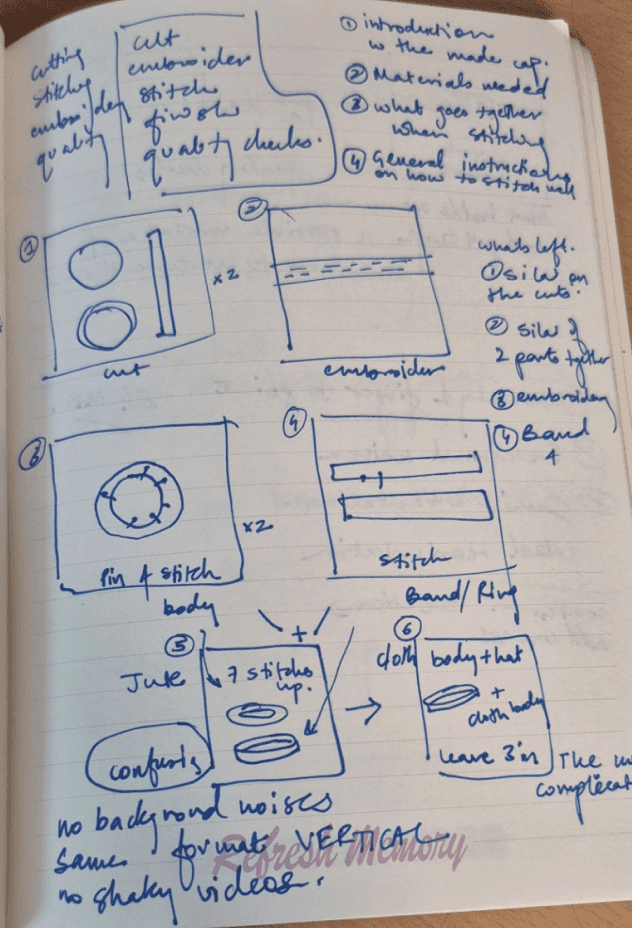 cutting
stitching
embroidery
quality
cut
embroider
stitch
finish
quality checks.
① introduction
to the made cap.
② Materials needed
③ what goes together
when stitching
④ General instructions
on how to stitch well
①
x2
cut
②
embroider
what's left.
① silai on
the cuts.
② silai of
2 parts together
③ embroidery
④ Band
4
③
x2
Pin & stitch
body
④
stitch
Band/Ring
+
⑤
Jute
7 stitches
up.
confusing
⑥
cloth
body + hat
+
cloth body
leave 3 in
The
no background noises
same format VERTICAL
no shaky videos.
Refresh Memory